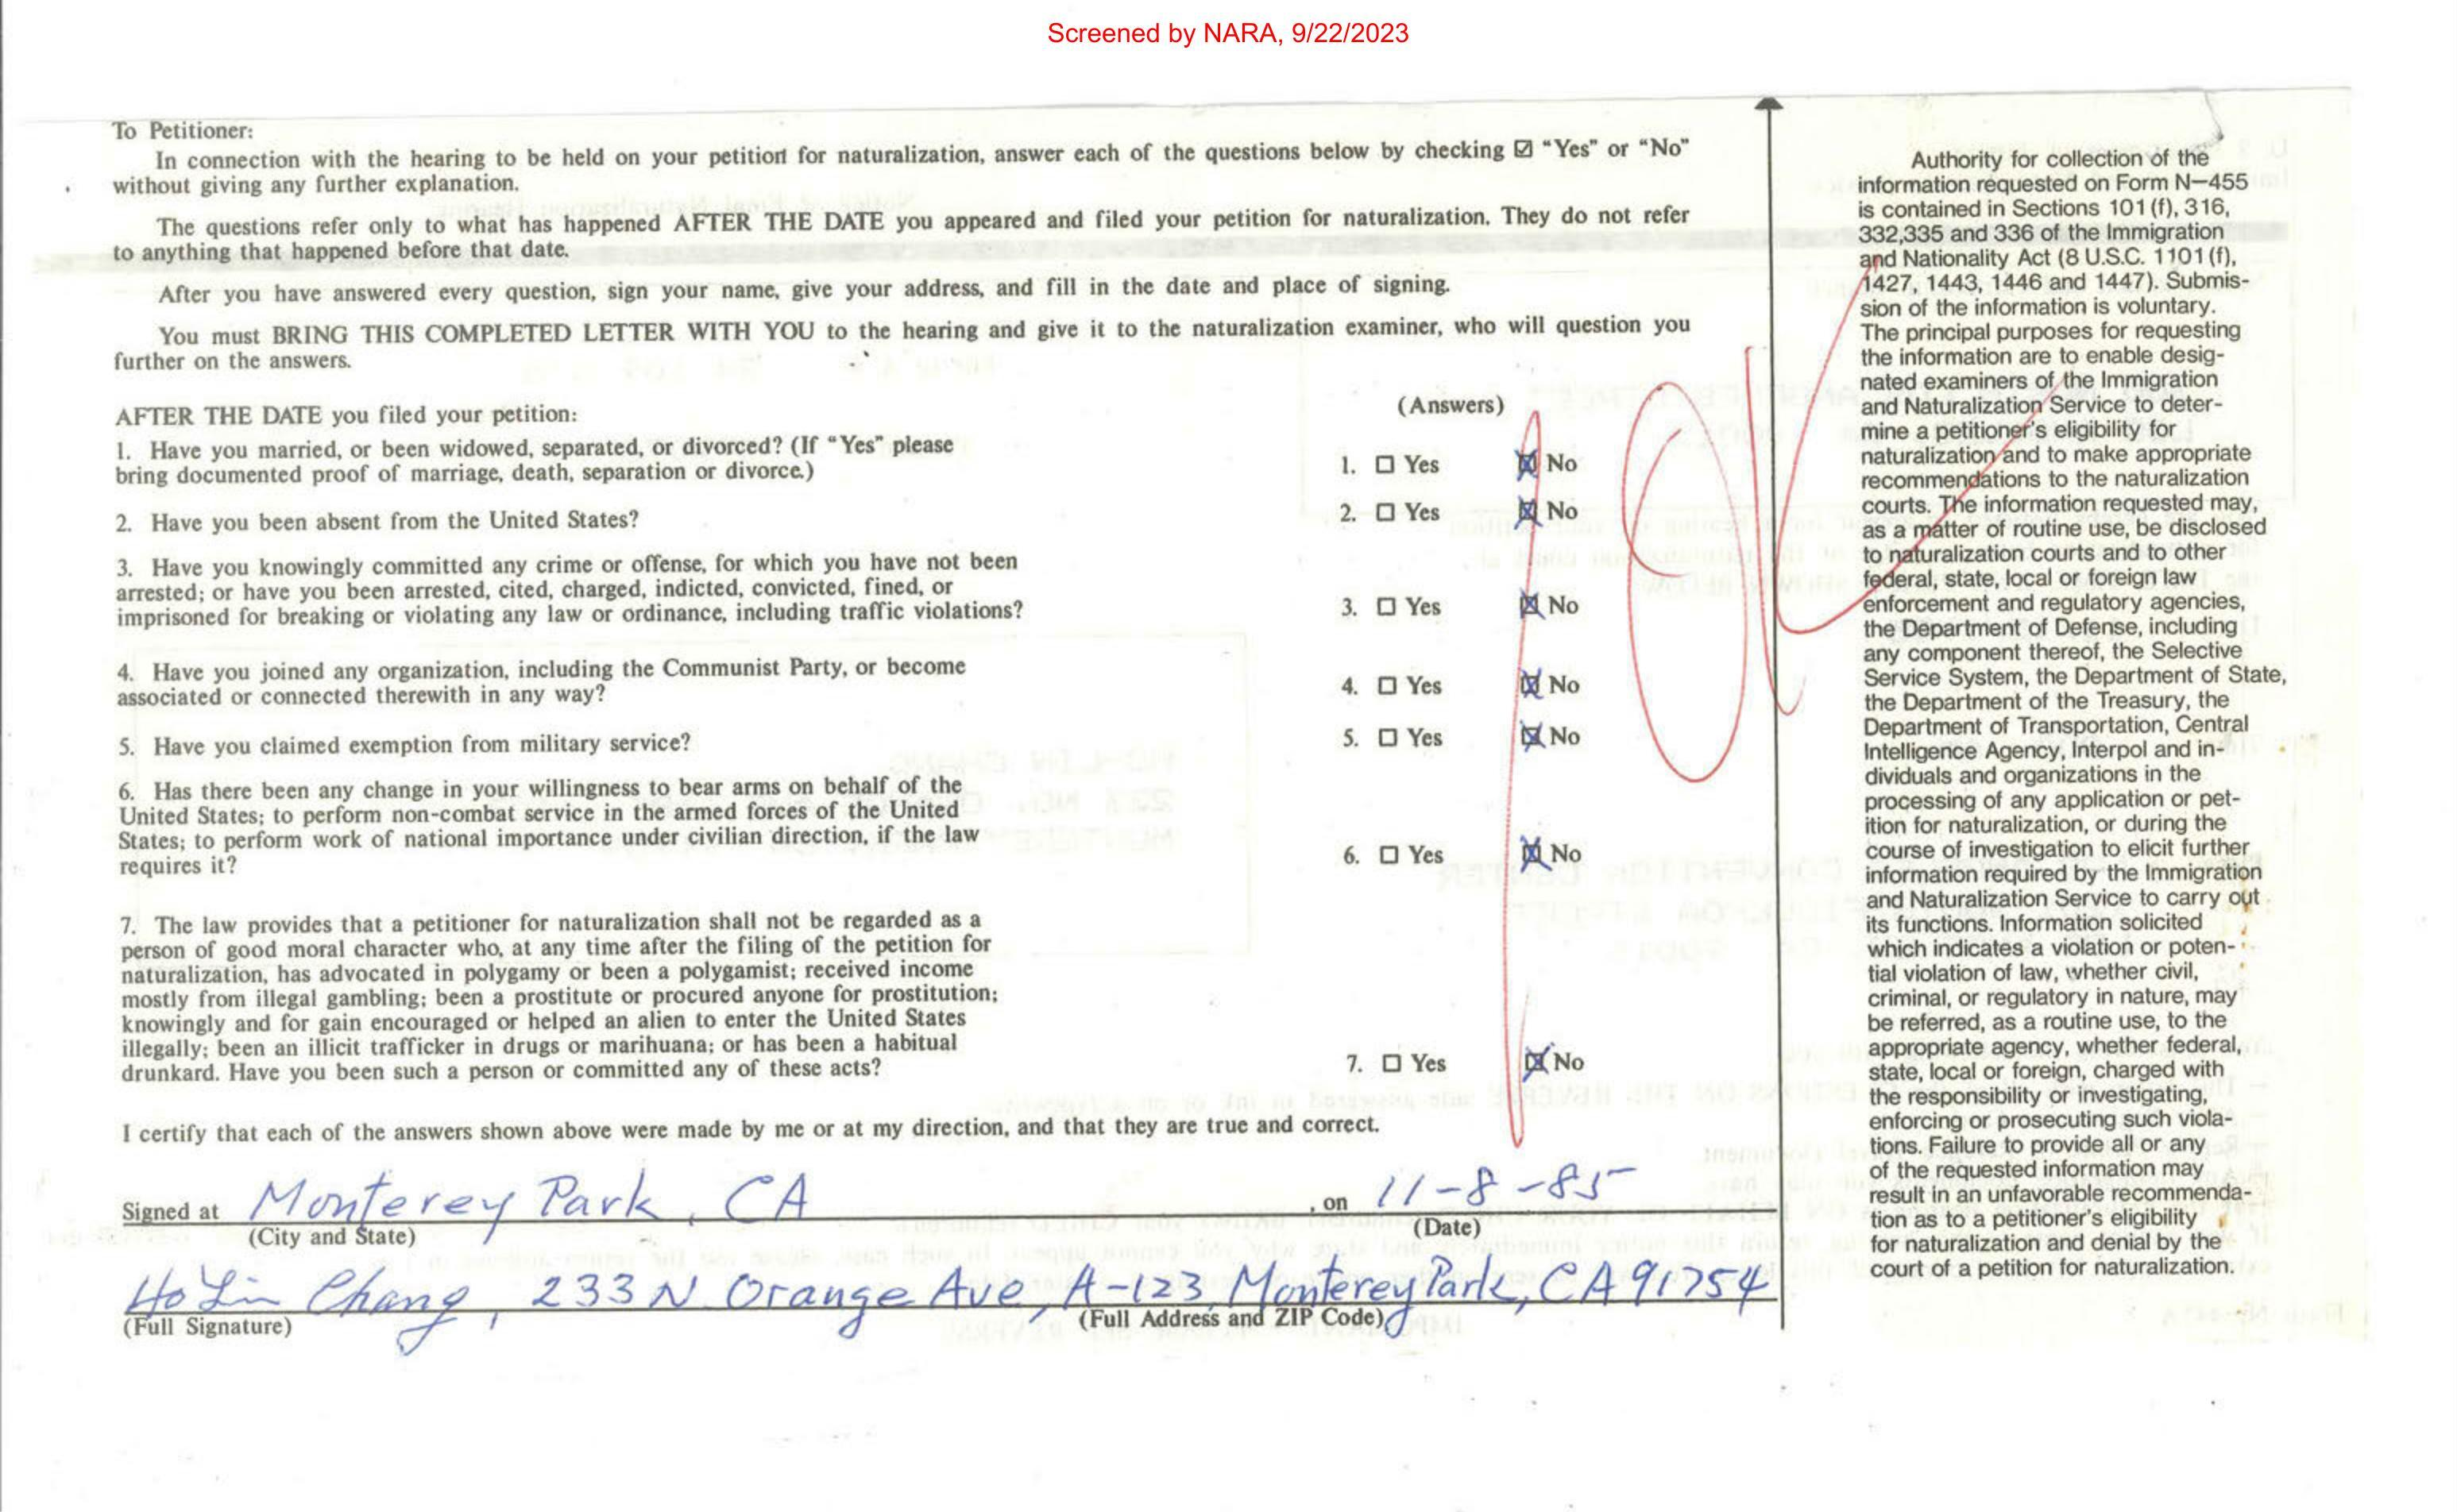 Screened by NARA, 9/22/2023
To Petitioner:
In connection with the hearing to be held on your petition for naturalization, answer each of the questions below by checking ☑ “Yes” or “No”
without giving any further explanation.
The questions refer only to what has happened AFTER THE DATE you appeared and filed your petition for naturalization. They do not refer
to anything that happened before that date.
After you have answered every question, sign your name, give your address, and fill in the date and place of signing.
You must BRING THIS COMPLETED LETTER WITH YOU to the hearing and give it to the naturalization examiner, who will question you
further on the answers.
AFTER THE DATE you filed your petition:
(Answers)
1. Have you married, or been widowed, separated, or divorced? (If “Yes” please
bring documented proof of marriage, death, separation or divorce.)
1. ☐ Yes ☒ No
2. Have you been absent from the United States?
2. ☐ Yes ☒ No
3. Have you knowingly committed any crime or offense, for which you have not been
arrested; or have you been arrested, cited, charged, indicted, convicted, fined, or
imprisoned for breaking or violating any law or ordinance, including traffic violations?
3. ☐ Yes ☒ No
4. Have you joined any organization, including the Communist Party, or become
associated or connected therewith in any way?
4. ☐ Yes ☒ No
5. Have you claimed exemption from military service?
5. ☐ Yes ☒ No
6. Has there been any change in your willingness to bear arms on behalf of the
United States; to perform non-combat service in the armed forces of the United
States; to perform work of national importance under civilian direction, if the law
requires it?
6. ☐ Yes ☒ No
7. The law provides that a petitioner for naturalization shall not be regarded as a
person of good moral character who, at any time after the filing of the petition for
naturalization, has advocated in polygamy or been a polygamist; received income
mostly from illegal gambling; been a prostitute or procured anyone for prostitution;
knowingly and for gain encouraged or helped an alien to enter the United States
illegally; been an illicit trafficker in drugs or marihuana; or has been a habitual
drunkard. Have you been such a person or committed any of these acts?
7. ☐ Yes ☒ No
I certify that each of the answers shown above were made by me or at my direction, and that they are true and correct.
Signed at Monterey Park, CA, on 11-8-85
(City and State) (Date)
Ho Lin Chang, 233 N. Orange Ave, A-123, Monterey Park, CA 91754
(Full Signature) (Full Address and ZIP Code)
Authority for collection of the
information requested on Form N–455
is contained in Sections 101 (f), 316,
332,335 and 336 of the Immigration
and Nationality Act (8 U.S.C. 1101 (f),
1427, 1443, 1446 and 1447). Submis-
sion of the information is voluntary.
The principal purposes for requesting
the information are to enable desig-
nated examiners of the Immigration
and Naturalization Service to deter-
mine a petitioner's eligibility for
naturalization and to make appropriate
recommendations to the naturalization
courts. The information requested may,
as a matter of routine use, be disclosed
to naturalization courts and to other
federal, state, local or foreign law
enforcement and regulatory agencies,
the Department of Defense, including
any component thereof, the Selective
Service System, the Department of State,
the Department of the Treasury, the
Department of Transportation, Central
Intelligence Agency, Interpol and in-
dividuals and organizations in the
processing of any application or pet-
ition for naturalization, or during the
course of investigation to elicit further
information required by the Immigration
and Naturalization Service to carry out
its functions. Information solicited
which indicates a violation or poten-
tial violation of law, whether civil,
criminal, or regulatory in nature, may
be referred, as a routine use, to the
appropriate agency, whether federal,
state, local or foreign, charged with
the responsibility or investigating,
enforcing or prosecuting such viola-
tions. Failure to provide all or any
of the requested information may
result in an unfavorable recommenda-
tion as to a petitioner's eligibility
for naturalization and denial by the
court of a petition for naturalization.